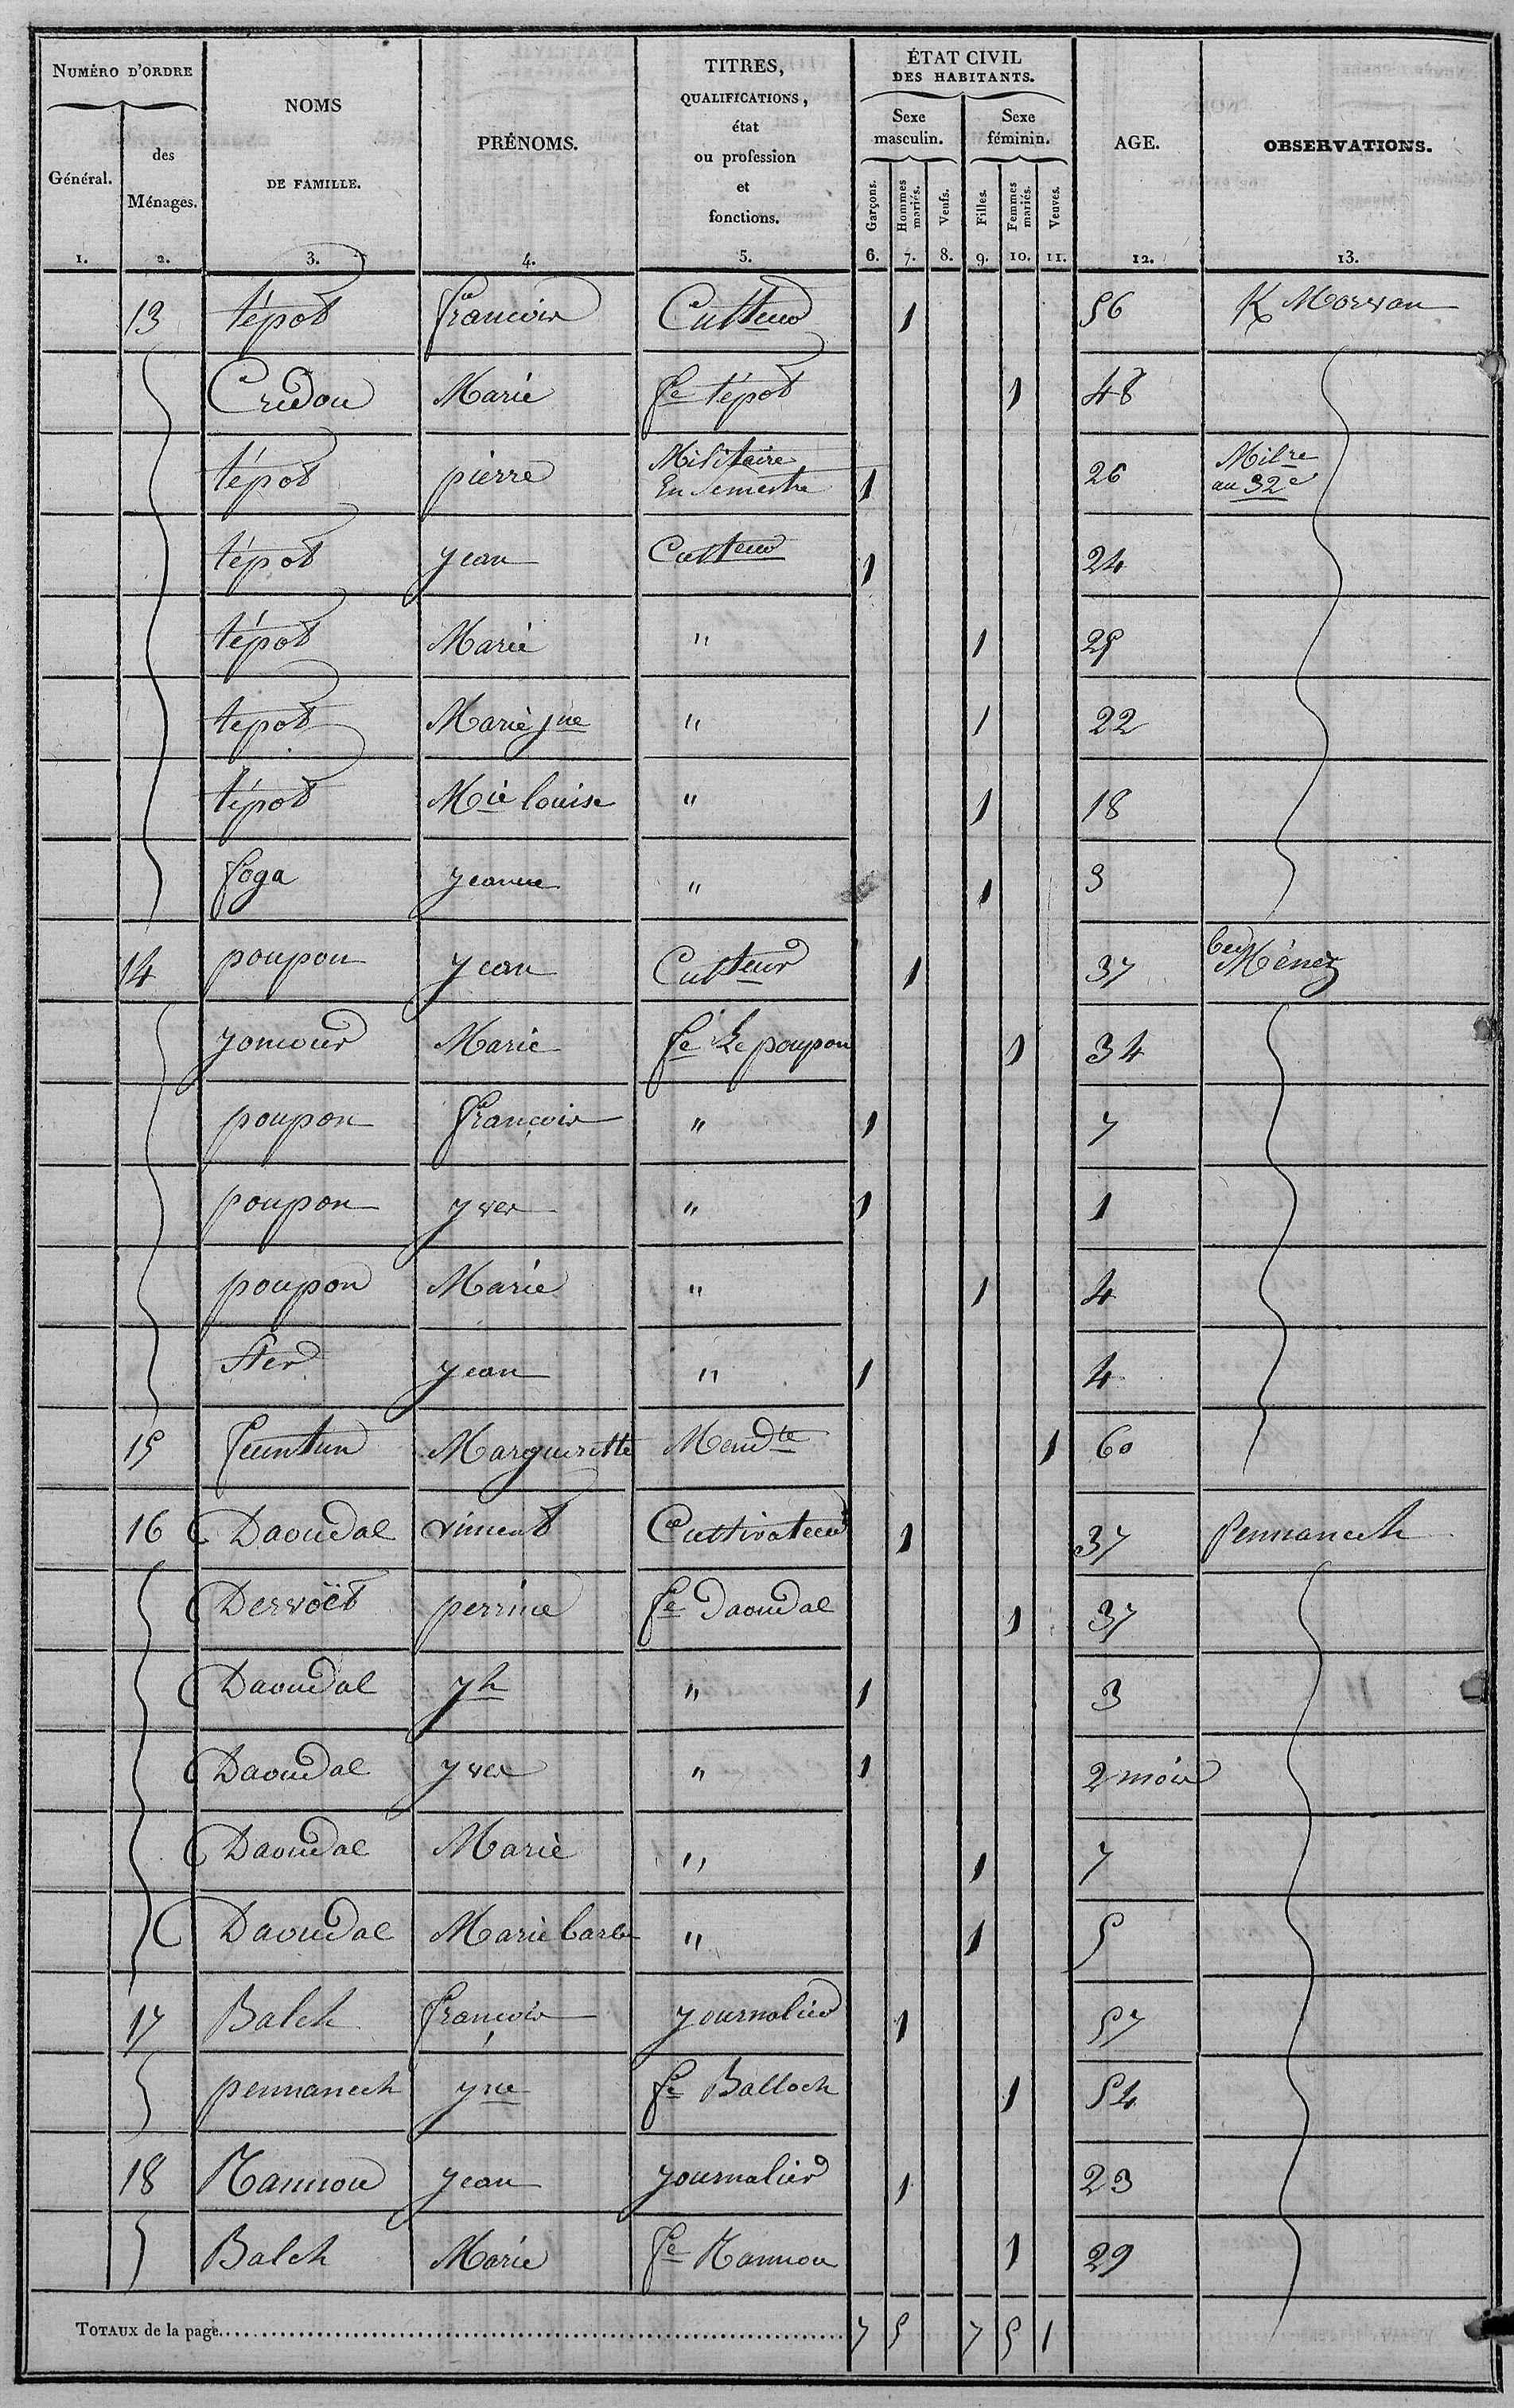 NUMÉRO D'ORDRE
Général.
des Ménages.
NOMS DE FAMILLE.
PRÉNOMS.
TITRES, QUALIFICATIONS, état ou profession et fonctions.
ÉTAT CIVIL DES HABITANTS.
Sexe masculin.
Sexe féminin.
Garçons.
Hommes mariés.
Veufs.
Filles.
Femmes mariés.
Veuves.
AGE.
OBSERVATIONS.
1. 2. 3. 4. 5. 6. 7. 8. 9. 10. 11. 12. 13.
13 tépot francois Culteur 1 56 K Morvan
Credou Marie fe tépot 1 48
tépot pierre Militaire En Semestre 1 26 Milre au 32e
tépot yean Culteur 1 24
tépot Marie " 1 25
tepot Marie jne " 1 22
tépot Mie louise " 1 18
foga yeanne " 1 3
14 poupon yean Culteur 1 37 beg Ménez
yoncour Marie fe Le poupon 1 34
poupon françois " 1 7
poupon yves " 1 1
poupon Marie " 1 4
Ster yean " 1 4
15 feuntun Margueritte Mendte 1 60
16 Daoudal vincent Cultivateur 1 37 Pennanech
Dervoët perrine fe Daoudal 1 37
Daoudal yh " 1 3
Daoudal yves " 1 2 mois
Daoudal Marie " 1 7
Daoudal Marie barbe " 1 5
17 Balch françois yournalier 1 57
pennanech yne fe Balloch 1 54
18 Nannou yean yournalier 1 23
Balch Marie fe Nannou 1 29
TOTAUX de la page 7 5 7 5 1